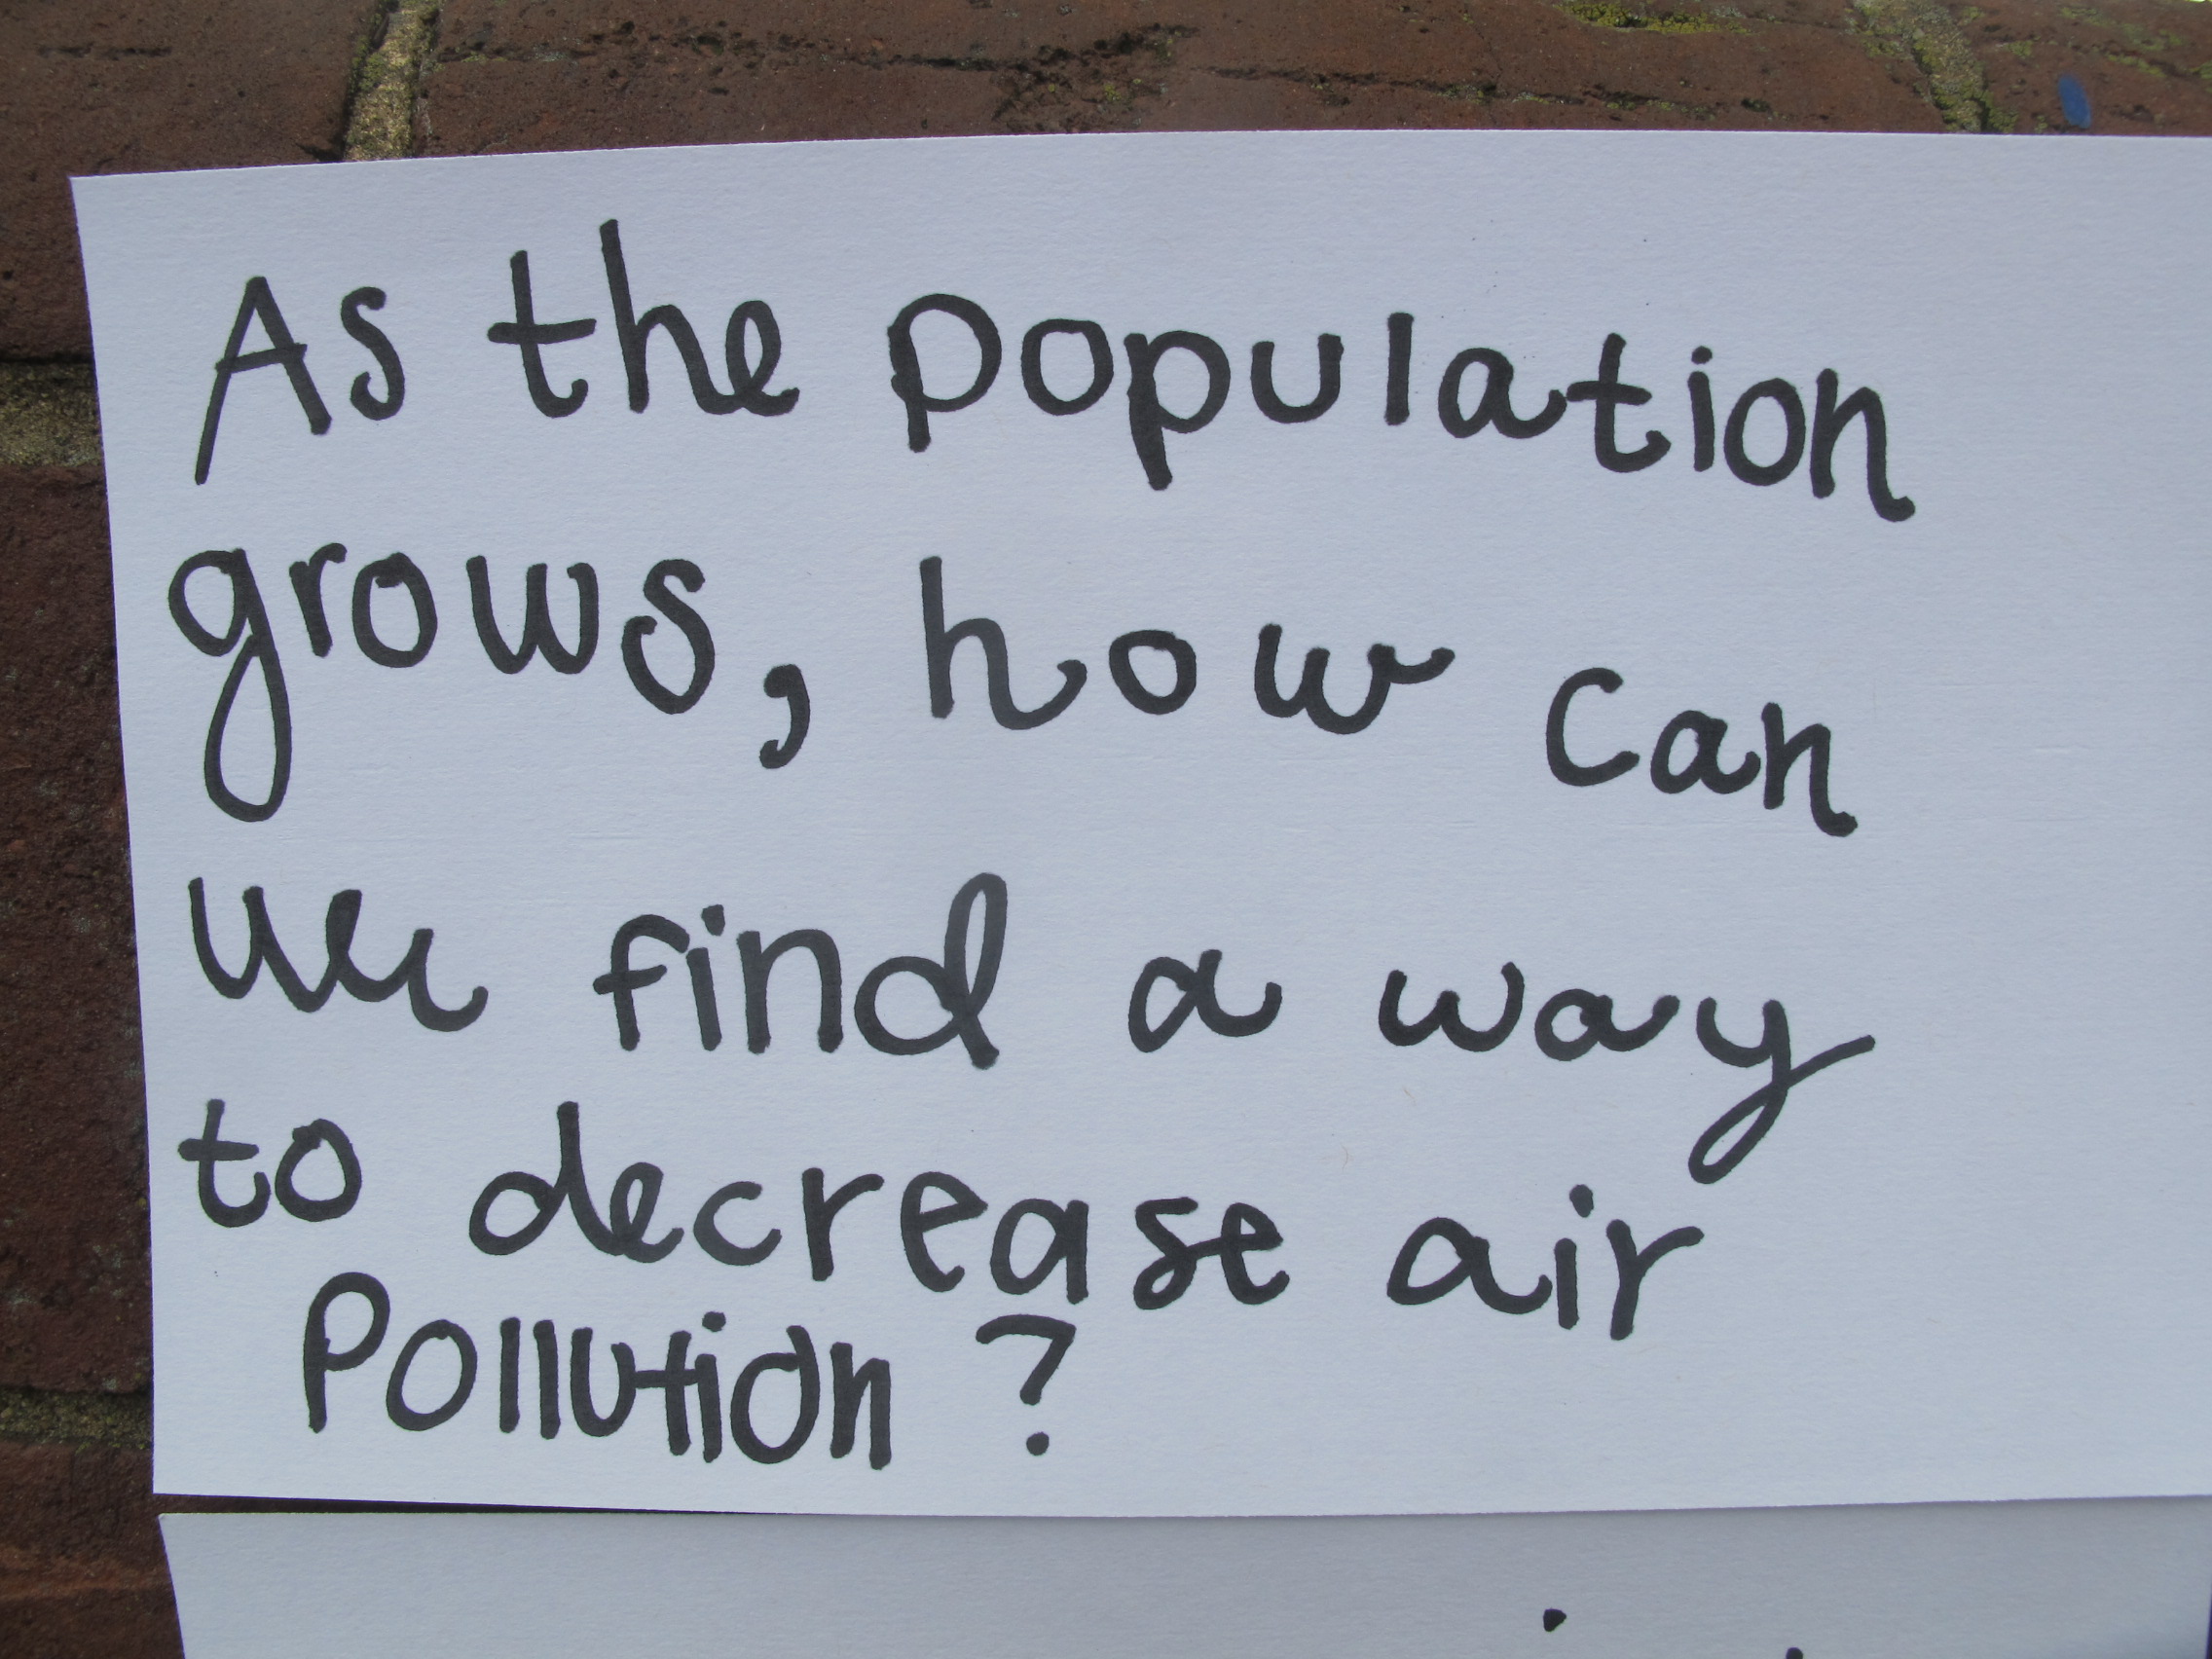 As the population
grows, how can
we find a way
to decrease air
Pollution?